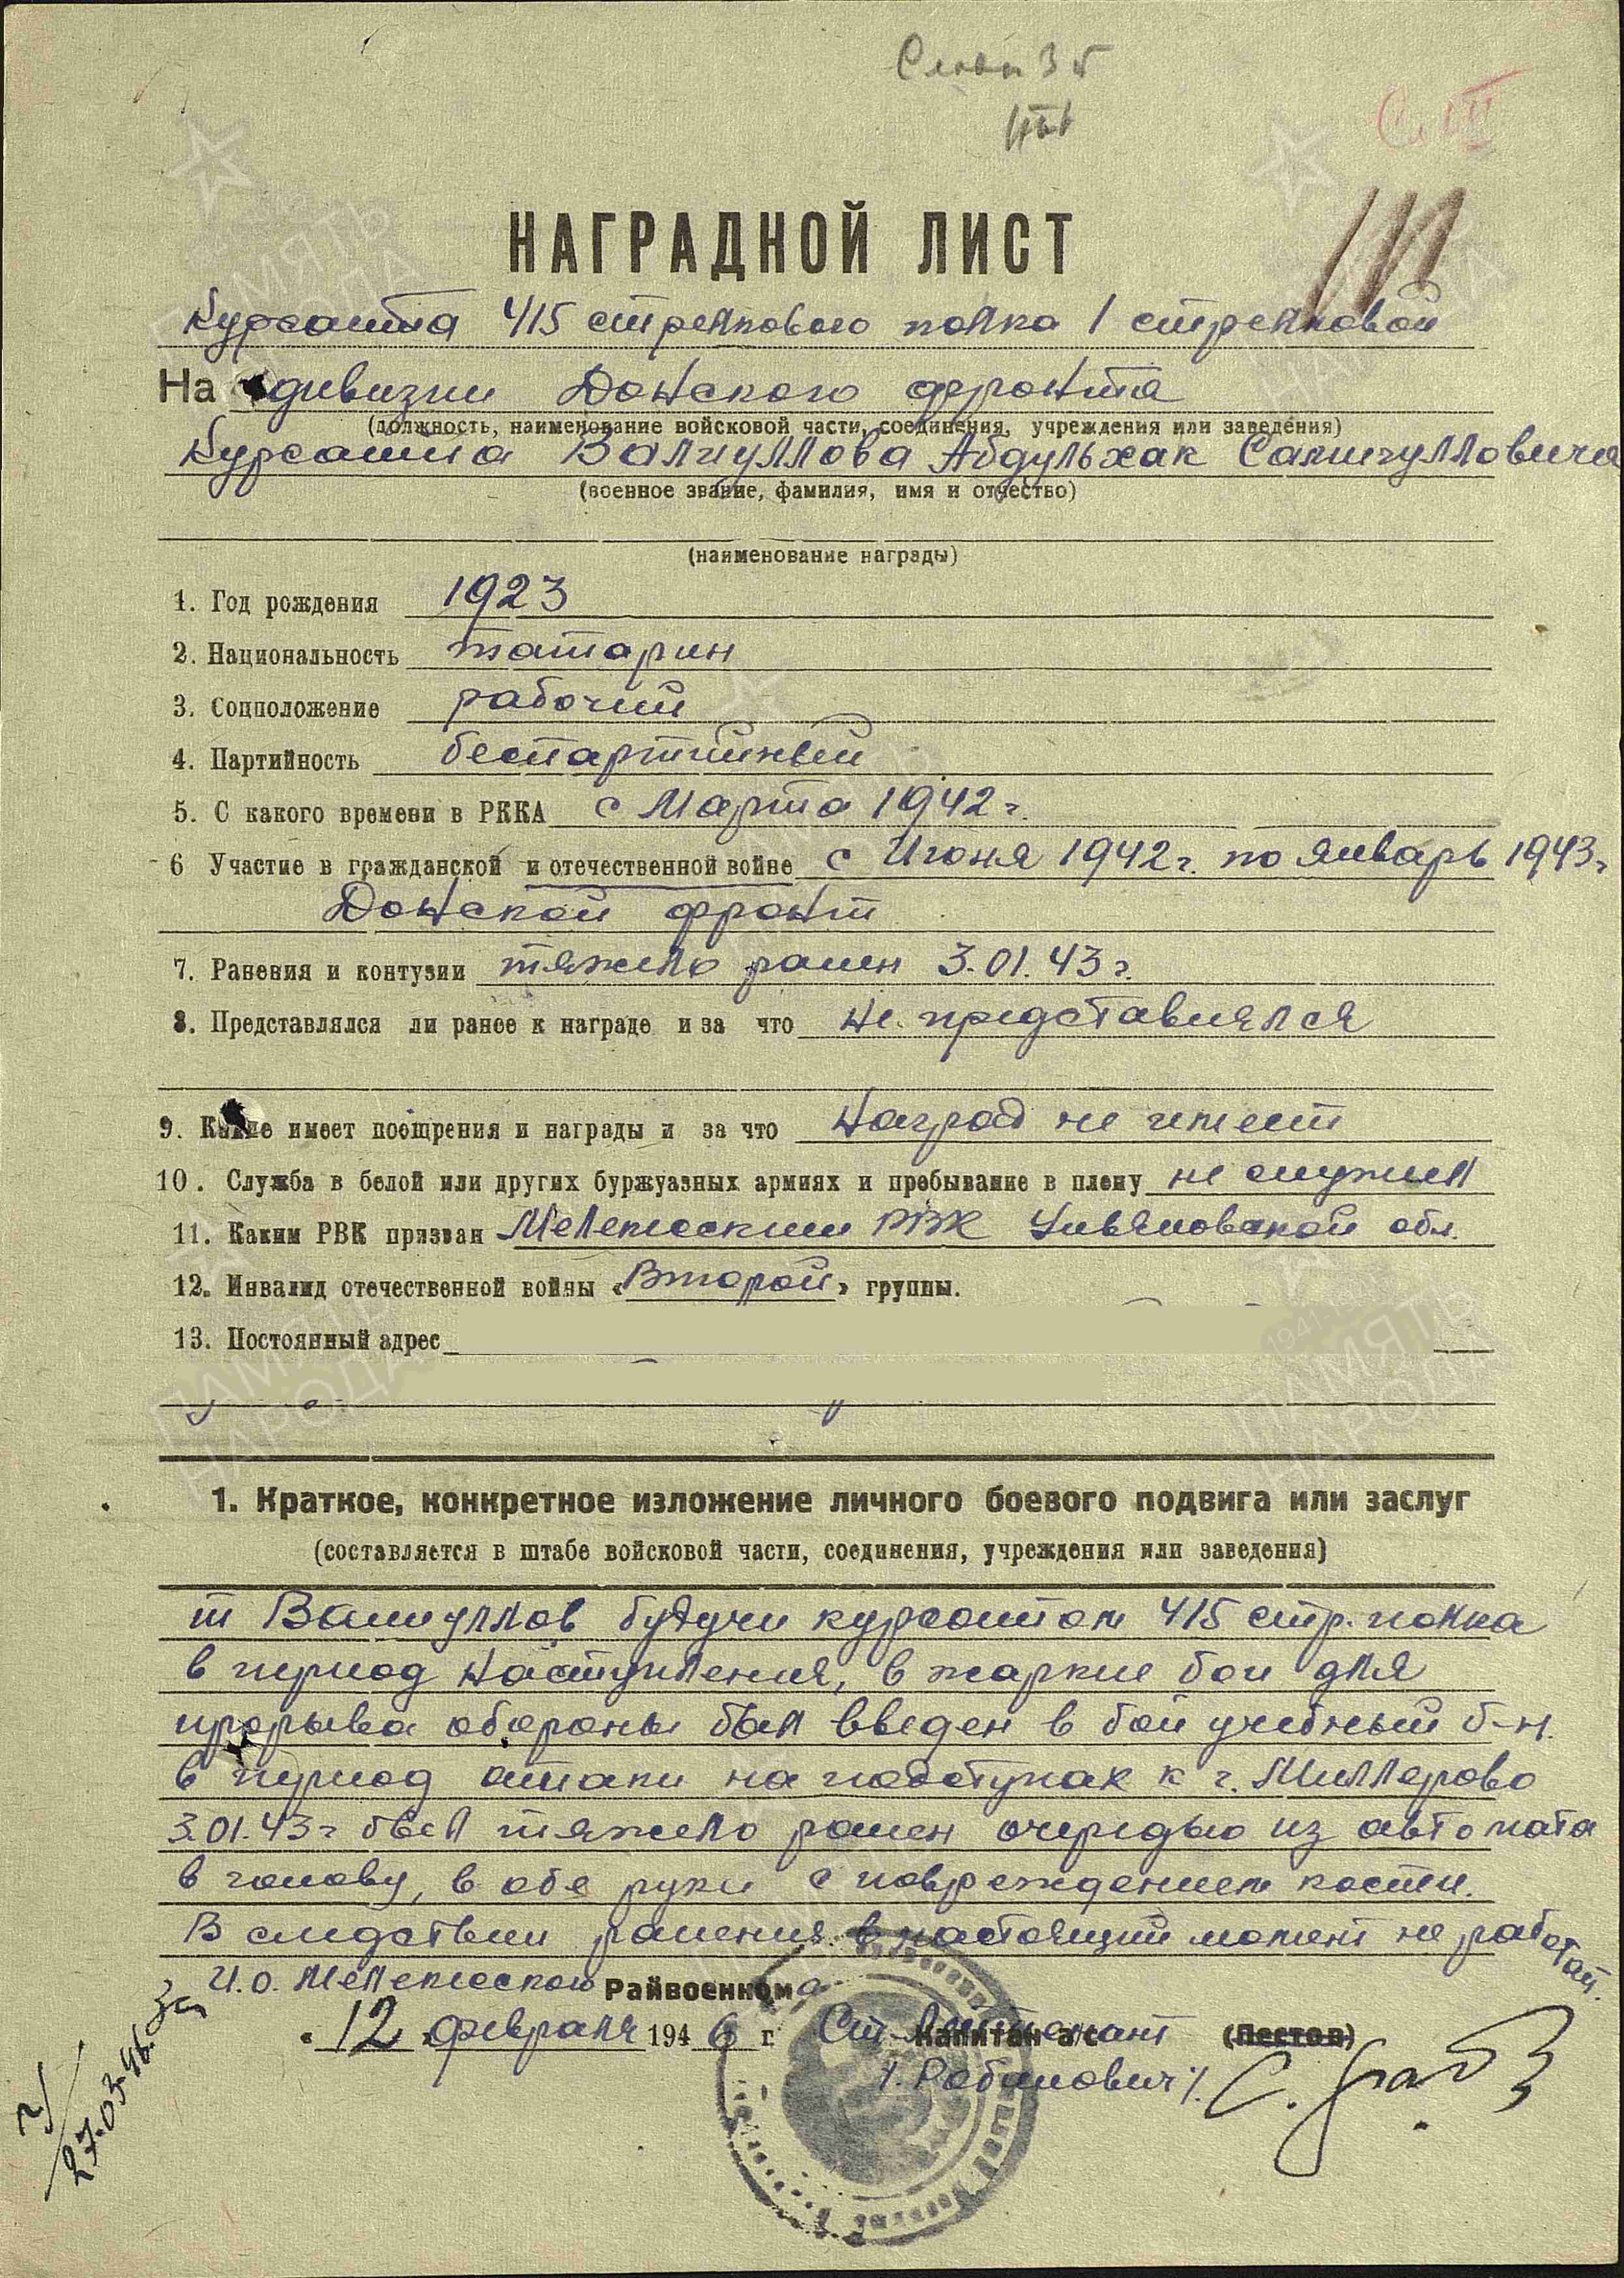 Славы 3 ст
СлIII
НАГРАДНОЙ ЛИСТ
Курсанта 415 стрелкового полка 1 стрелковой
На дивизии Донского фронта
(должность, наименование войсковой части, соединения, учреждения или заведения)
Курсанта Валиуллова Абдульхак Салигулловича
(военное звание, фамилия, имя и отчество)
(наименование награды)
1. Год рождения 1923
2. Национальность татарин
3. Соцположение рабочий
4. Партийность беспартийный
5. С какого времени в РККА с Марта 1942 г.
6 Участие в гражданской и отечественной войне с Июня 1942 г. по январь 1943 г
Донской фронт
7. Ранения и контузии тяжело ранен 3.01.43 г.
8. Представлялся ли ранее к награде и за что не представлялся
9. Какие имеет поощрения и награды и за что Наград не имеет
10. Служба в белой или других буржуазных армиях и пребывание в плену не служил
11. Каким РВК призван Мелекесским РВК Ульяновской обл.
12. Инвалид отечественной войны «Второй» группы.
13. Постоянный адрес
1. Краткое, конкретное изложение личного боевого подвига или заслуг
(составляется в штабе войсковой части, соединения, учреждения или заведения)
т Валиуллов будучи курсантом 415 стр. полка
в период наступления, в жаркие бои для
прорыва обороны был введен в бой учебный б-н.
в период атаки на подступах к г. Миллерово
3.01.43 г был тяжело ранен очередью из автомата
в голову, в обе руки с повреждением кости.
В следствии ранения в настоящий момент не работает.
И.О. Мелекесского Райвоенкома
"12 февраля 1946 г. Ст. Лейтенант капитан а/с (Пестов)
/. Рабинович /.
27.03.46.
ПАМЯТЬ НАРОДА